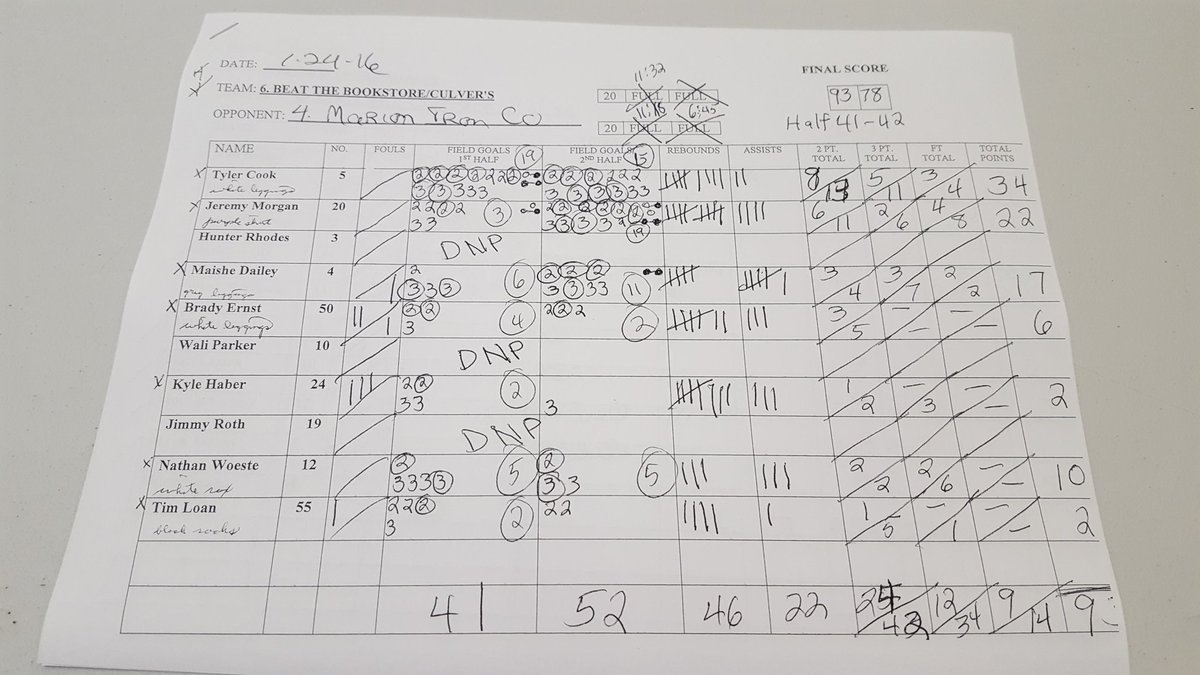 DATE: 1-24-16
TEAM: 6. BEAT THE BOOKSTORE/CULVER'S
OPPONENT: 4. Marion Iron Co
11:32
20 FULL FULL
6:45
20 FULL FULL
FINAL SCORE
93 78
Half 41-42
NAME NO. FOULS FIELD GOALS 1ST HALF 19 FIELD GOALS 2ND HALF 15 REBOUNDS ASSISTS 2 PT. TOTAL 3 PT. TOTAL FT TOTAL TOTAL POINTS
X Tyler Cook 5 8/13 5/11 3/4 34
white leggings
X Jeremy Morgan 20 2222 3 6/11 2/6 4/8 22
purple shirt 33 19
Hunter Rhodes 3 DNP
X Maishe Dailey 4 2 6 222 11 3/4 3/7 2/2 17
grey leggings 333 33333
X Brady Ernst 50 22 4 222 2 3/5 - - 6
white leggings 3
Wali Parker 10 DNP
X Kyle Haber 24 22 2 3 1/2 -/3 - 2
33
Jimmy Roth 19 DNP
X Nathan Woeste 12 2 5 2 5 2/2 2/6 - 10
white sox 3333 33
X Tim Loan 55 222 2 22 1/5 -/1 - 2
black socks 3
41 52 46 22 12/34 9/14 9